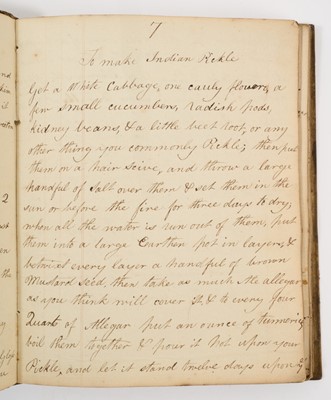 7
To make Indian Pickle
Get a White Cabbage, one cauly flower, a
few small cucumbers, radish pods,
kidney beans, & a little beet root, or any
other thing you commonly Pickle; then put
them on a hair scive, and throw a large
handful of Salt over them & set them in the
sun or before the fire for three days to dry,
when all the water is run out of them, put
them into a large Earthen pot in layers, &
betwixt every layer a handful of brown
Mustard Seed, then take as much Ale allegar
as you think will cover it, & to every four
Quarts of Allegar put an ounce of turmeric
boil them together & pour it hot upon your
Pickle, and let it stand twelve days upon
2
the